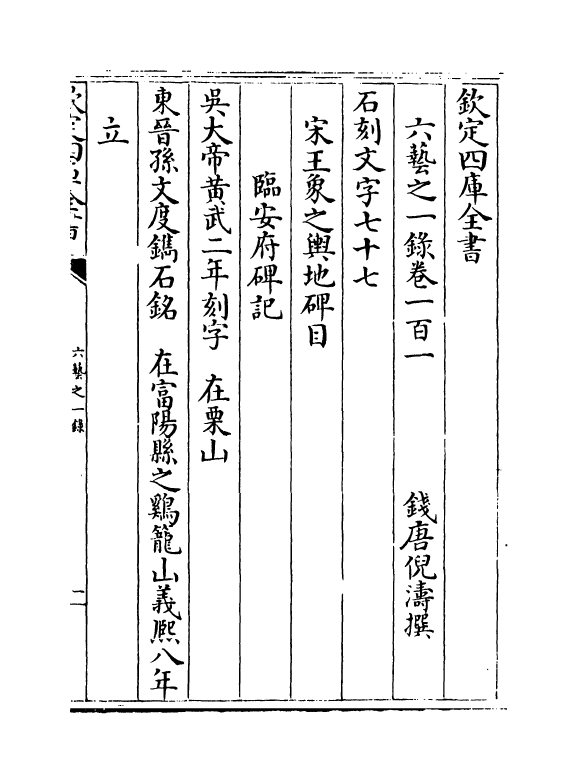 欽定四庫全書
六藝之一錄卷一百一　錢唐倪濤撰
石刻文字七十七
宋王象之輿地碑目
臨安府碑記
吳大帝黃武二年刻字　在栗山
東晉孫文度鐫石銘　在富陽縣之鷄籠山義熈八年
立
欽定四庫全書
六藝之一錄